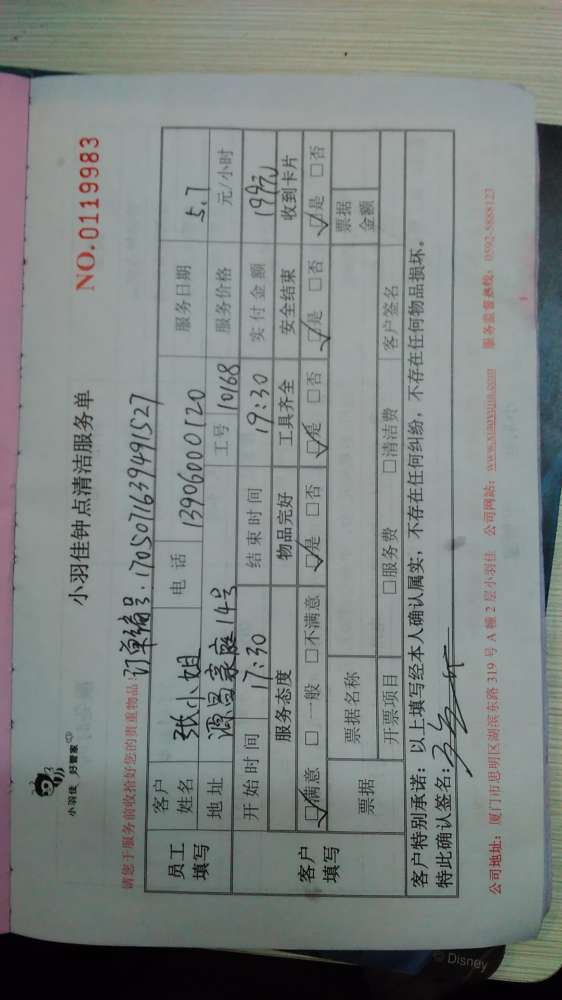 小羽佳 好管家
小羽佳钟点清洁服务单
NO.0119983
请您于服务前收拾好您的贵重物品!
订单编号:1705071639491527
员工填写
客户姓名 张小姐 电话 13906000120 服务日期 5.7
地址 源昌豪庭14号 工号 10168 服务价格 元/小时
开始时间 17:30 结束时间 19:30 实付金额 199元
客户填写
服务态度 物品完好 工具齐全 安全结束 收到卡片
☑满意 □一般 □不满意 ☑是 □否 ☑是 □否 ☑是 □否 ☑是 □否
票据 票据名称 票据金额
开票项目 □服务费 □清洁费 客户签名
客户特别承诺:以上填写经本人确认属实,不存在任何纠纷,不存在任何物品损坏。
特此确认签名:
公司地址:厦门市思明区湖滨东路 319 号 A 幢 2 层小羽佳 公司网站:www.xiaoyujia.com 服务监督热线:0592-5888123
© Disney